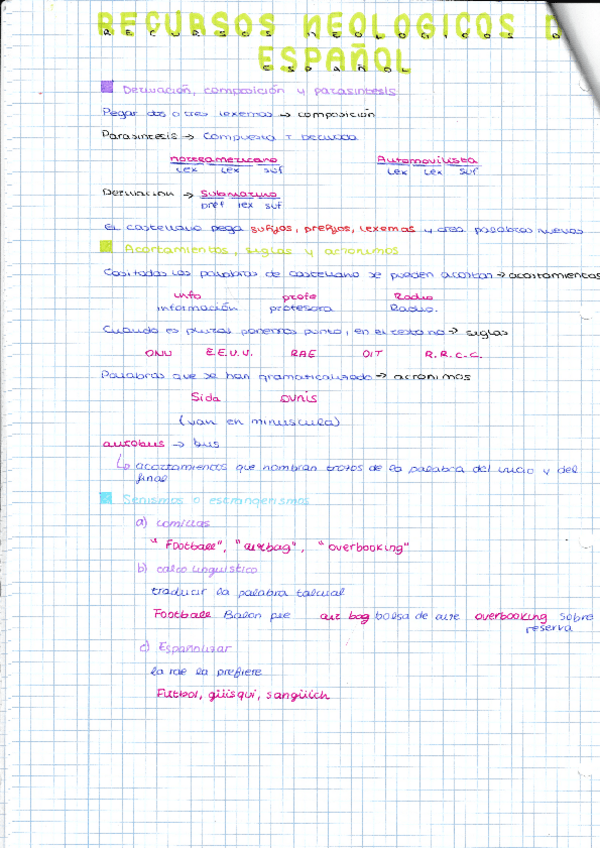 RECURSOS NEOLOGICOS D
ESPAÑOL
Derivación, composición y parasíntesis
Pegar dos o tres lexemos → composición
Parasintesis → Compuesta + Derivada
norteamericano Automovilista
Lex Lex suf Lex Lex suf
Derivación → Submarino
pref lex suf
El castellano pega sufijos, prefijos, lexemas y crea palabras nuevas
Acortamientos, siglas y acronimos
Casi todas las palabras de castellano se pueden acortar → acortamientos
info profe Radio
información profesora Radio.
Cuando es plural ponemos punto, en el resto no → siglas
ONU E.E.U.U. RAE OIT R.R.C.C.
Palabras que se han gramaticalizado → acronimos
Sida ovnis
(van en minuscula)
autobus → bus
↳ acortamientos que nombran trozos de la palabra del inicio y del
final
o extrangerismos
a) comillas
"Football", "airbag", "overbooking"
b) calco linguistico
traducir la palabra tal cual
Football Balon pie air bag bolsa de aire overbooking sobre
reserva
c) Españolizar
la rae la prefiere
Futbol, güisqui, sangüich